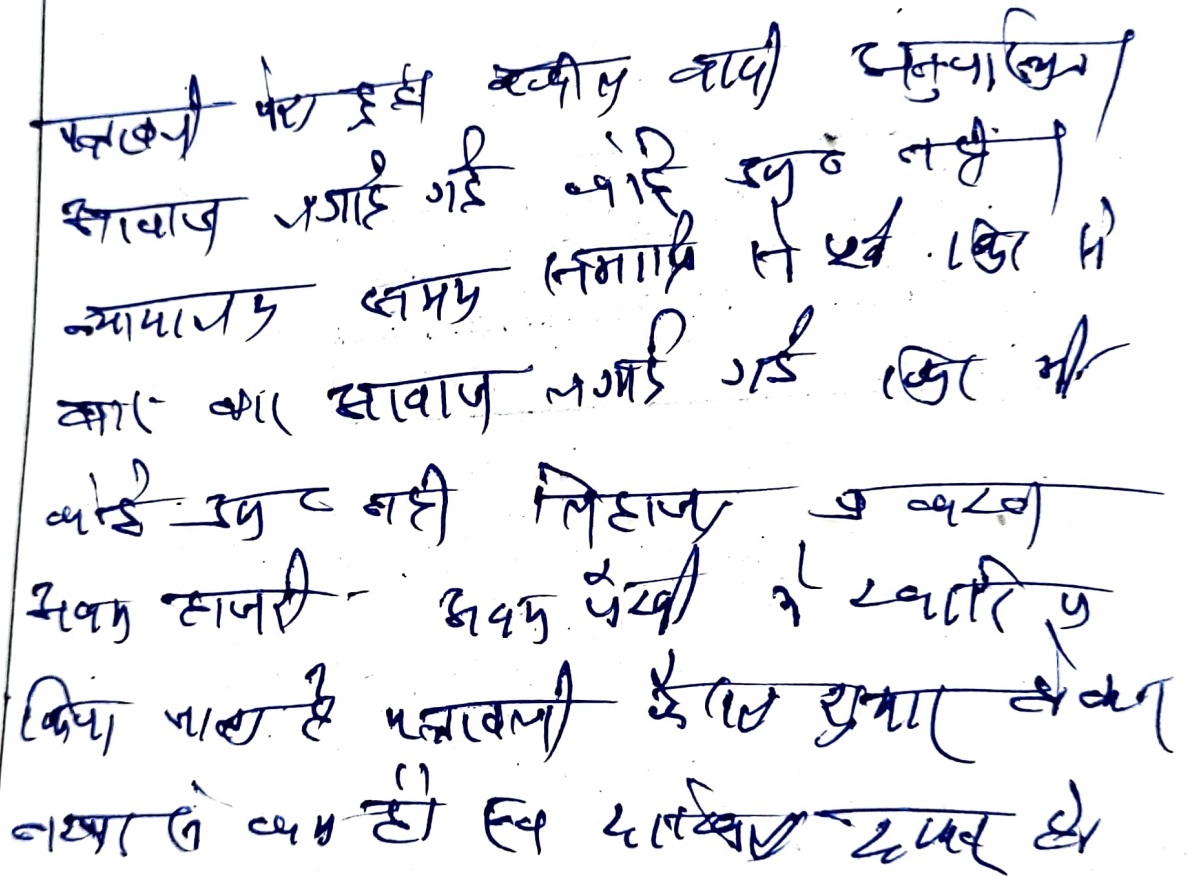 पत्रावली पेश हुई वकील वादी अनुपस्थित।
आवाज लगाई गई कोई उप० नहीं।
न्यायालय समय समाप्ति से पूर्व फिर से
बार बार आवाज लगाई गई फिर भी
कोई उप० नही लिहाजा प्रकरण
अदम हाजरी अदम पैरवी में खारिज
किया जाता है पत्रावली फैसल शुमार होकर
नम्बर से कम हो दाखिल दफ्तर हो